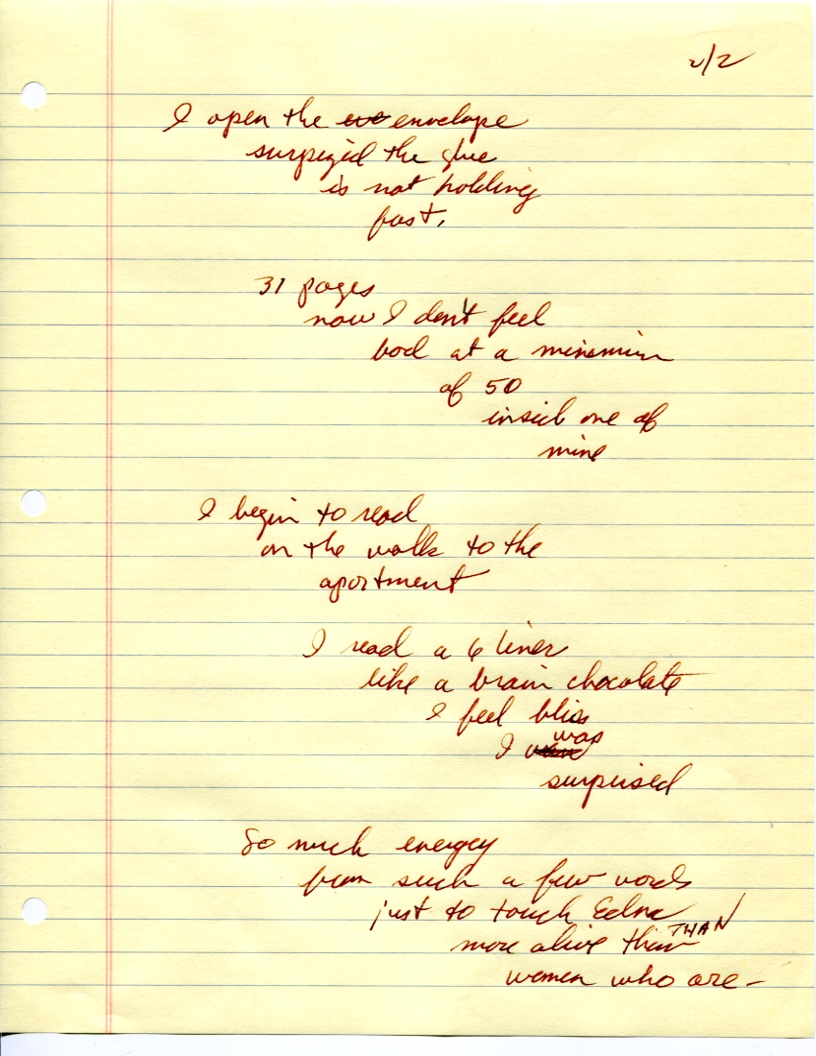 2/2
I open the eve envelope
surprized the glue
is not holding
fast.
31 pages
now I don't feel
bad at a minimum
of 50
inside one of
mine
I begin to read
on the walk to the
apartment
I read a 6 liner
like a brain chocolate
I feel bliss
I was
surprised
So much energey
from such a few words
just to touch Edna
more alive then THAN
women who are-